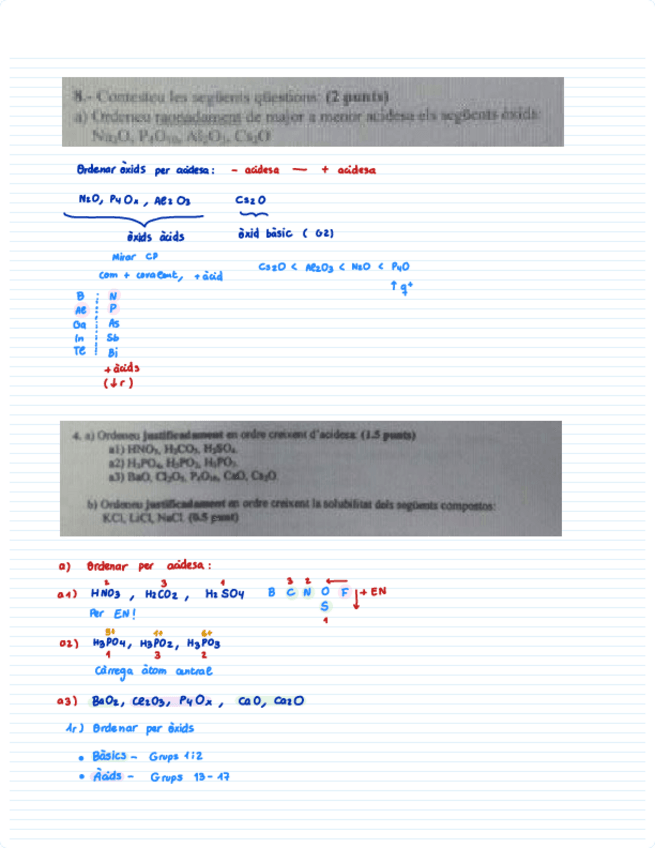 8.- Contesteu les següents qüestions: (2 punts)
a) Ordeneu raonadament de major a menor acidesa els següents òxids:
Na₂O, P₄O₁₀, Al₂O₃, Cs₂O
Ordenar òxids per acidesa: - acidesa — + acidesa
N2O, P4Ox, Al2O3 Cs2O
òxids àcids òxid bàsic (G2)
Mirar CP
com + covalent, + àcid
Cs2O < Al2O3 < N2O < P4O
↑ q+
B N
Al P
Ga As
In Sb
Te Bi
+ àcids
(↓r)
4. a) Ordeneu justificadament en ordre creixent d'acidesa: (1.5 punts)
a1) HNO₃, H₂CO₃, H₂SO₄.
a2) H₃PO₄, H₃PO₂, H₃PO₃.
a3) BaO, Cl₂O₃, P₄O₁₀, CaO, Cs₂O.
b) Ordeneu justificadament en ordre creixent la solubilitat dels següents compostos:
KCl, LiCl, NaCl. (0.5 punt)
a) Ordenar per acidesa:
2 3 1
a1) HNO3, H2CO2, H2SO4
3 2 ←
B C N O F ↓ + EN
S
1
Per EN!
5+ 1+ 6+
a2) H3PO4, H3PO2, H3PO3
1 3 2
Càrrega àtom central
a3) BaO2, Cl2O3, P4Ox, CaO, Ca2O
1r) Ordenar per òxids
• Bàsics - Grups 1i2
• Àcids - Grups 13-17